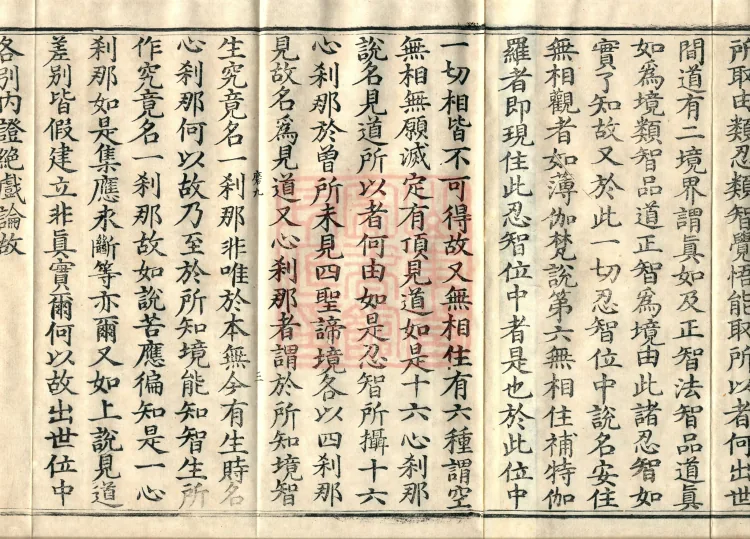 所取由類忍類智覺悟能取所以者何出世
間道有二境界謂眞如及正智法智品道眞
如爲境類智品道正智爲境由此諸忍智如
實了知故又於此一切忍智位中說名安住
無相觀者如薄伽梵說第六無相住補特伽
羅者即現住此忍智位中者是也於此位中
一切相皆不可得故又無相住有六種謂空
無相無願滅定有頂見道如是十六心刹那
說名見道所以者何由如是忍智所攝十六
心刹那於曾所未見四聖諦境各以四刹那
見故名爲見道又心刹那者謂於所知境智
生究竟名一刹那非唯於本無今有生時名
心刹那何以故乃至於所知境能知智生所
作究竟名一刹那故如說苦應徧知是一心
刹那如是集應永斷等亦爾又如上說見道
差別皆假建立非眞實爾何以故出世位中
各別內證絕戲論故